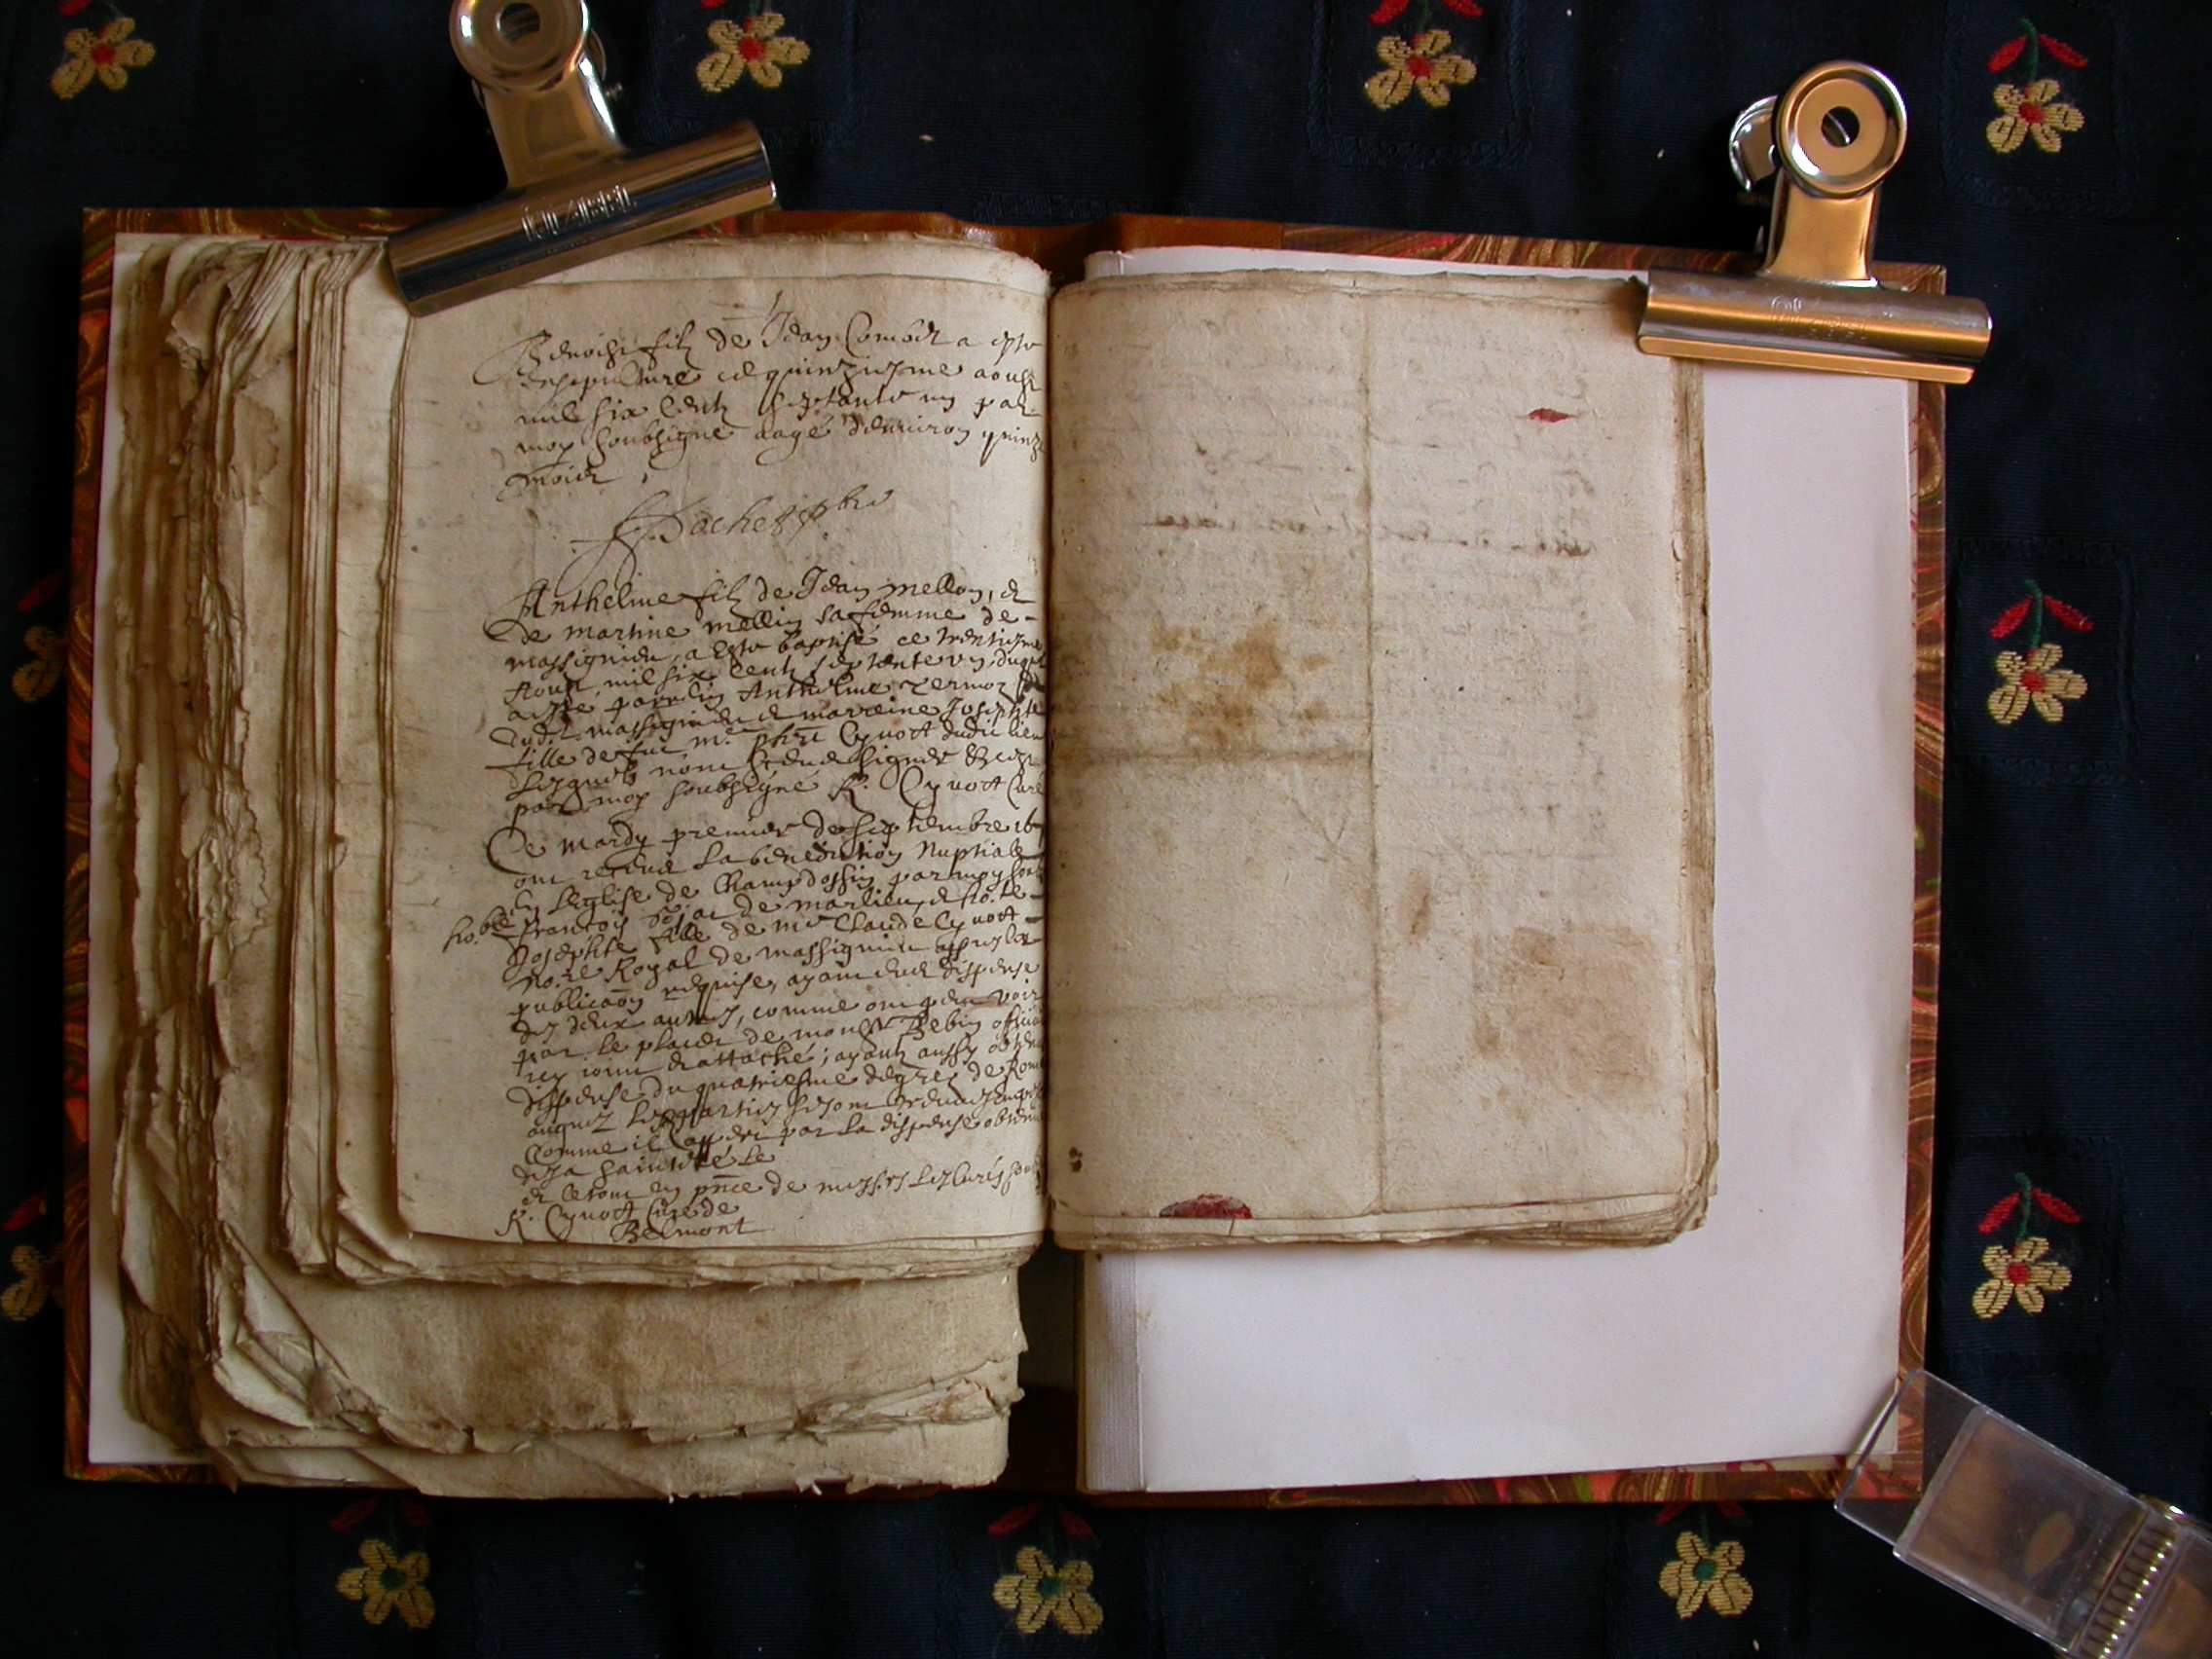 Benoist filz de Jean Combet a este
ensepulture ce quinziesme aoust
mil six centz septante un par
moy soubsigné aagé d'environ quinze
mois
Bachet pbre
Anthelme filz de Jean mellon, et
de martine mellin sa femme de -
massignieu, a este baptisé ce trentiesme
Aoust mil six centz septante un, duquel
a este parrin Anthelme
dudit massignieu et marreine Josephte
fille de feu me Cynost dudit lieu
lesquelz n'ont sceu signer
par moy soubsigné R. Cynost Curé
Ce mardy premier de septembre 16
ont receue La benediction Nuptiale
En L'eglise de Champdossin par moy
ho.ble françois de marlieu, et ho.te
Josephte fille de me Claude Cynost
no.re Royal de massignieu appres la
publicaon requise, ayant eue dispense
des deux autres, comme on peu voir
par le placet de monsr Bebin official
icy joint et attaché; ayantz aussy obtenu
dispense du quatriesme degrez de Rome
auquel les parties
Comme il appert par La dispense obtenue
de sa sainteté Le
et ce tout en pnce de Les Curés
R. Cynost Curé de
Belmont